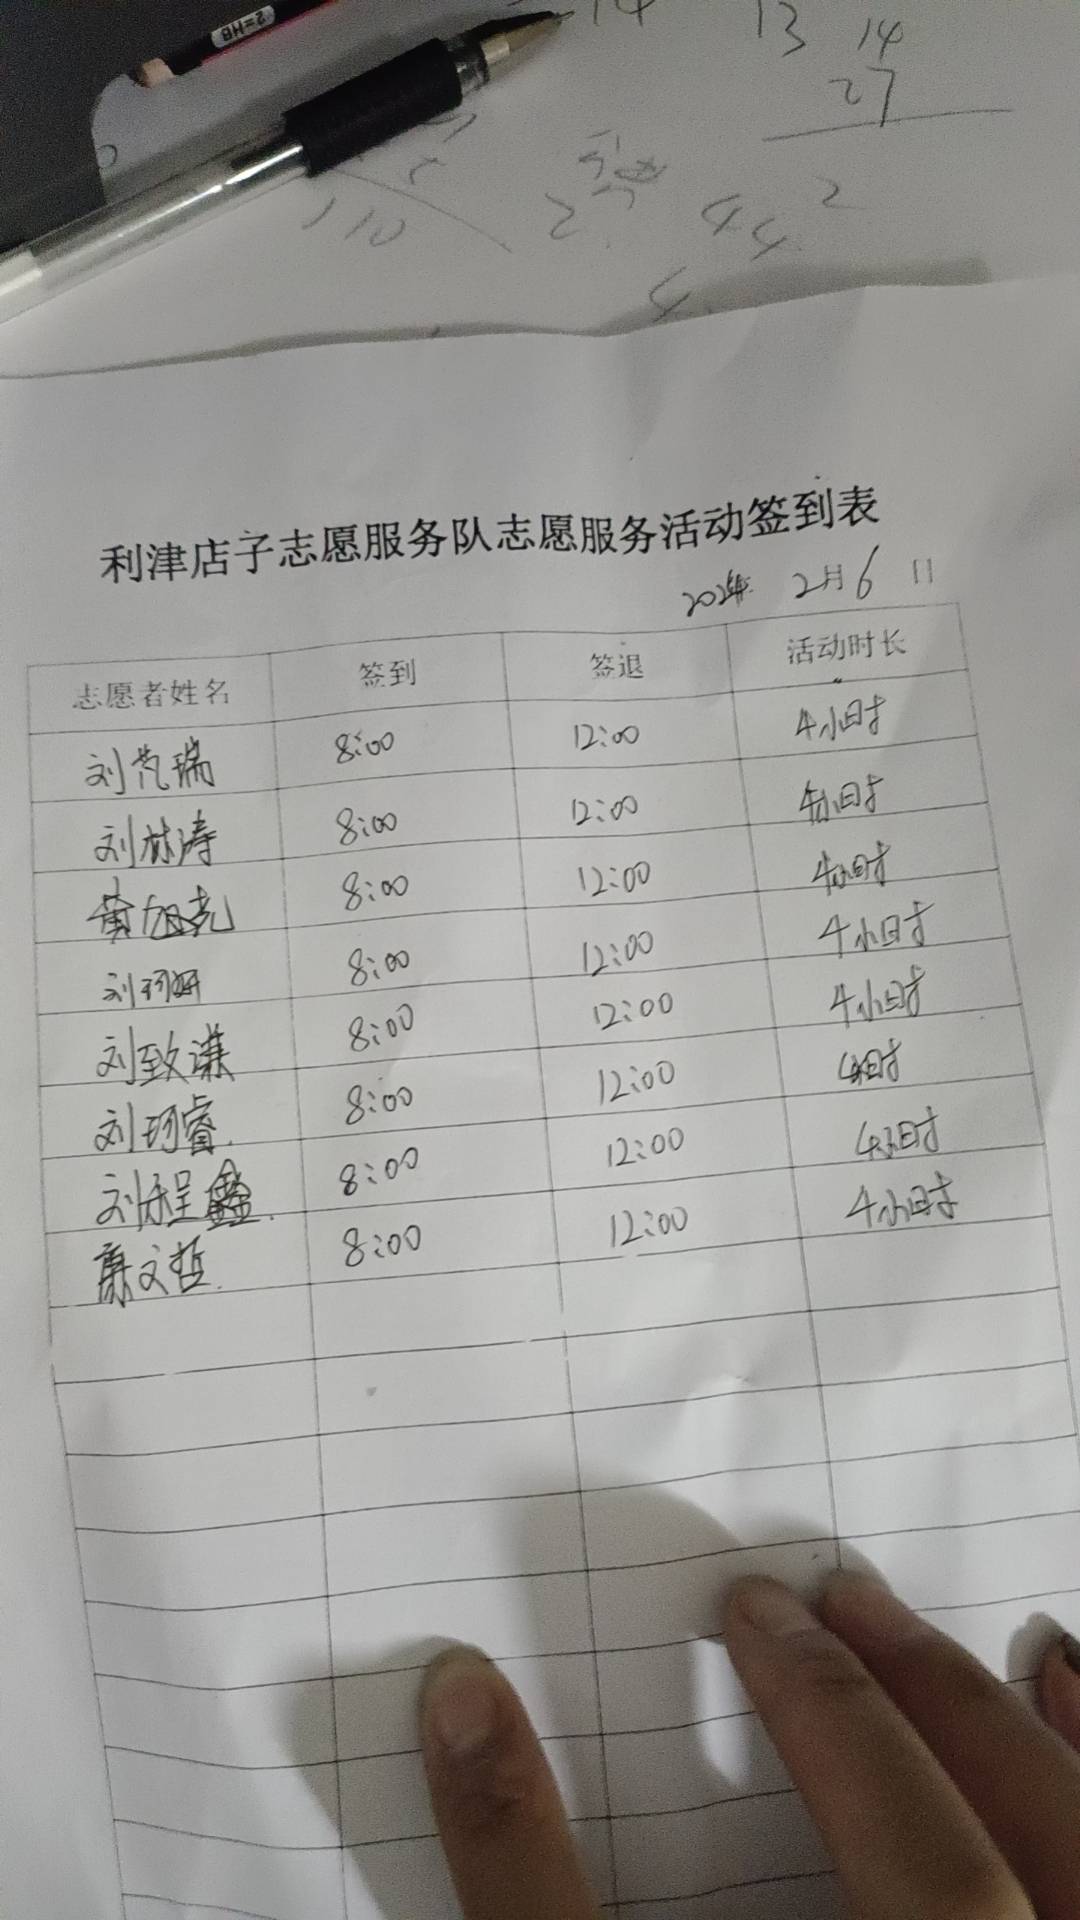 2=HB
14
13 14
27
110
2
44 2
4
利津店子志愿服务队志愿服务活动签到表
2月6日
志愿者姓名 签到 签退 活动时长
刘芃瑞 8:00 12:00 4小时
刘林涛 8:00 12:00 4小时
黄旭尧 8:00 12:00 4小时
刘珂妍 8:00 12:00 4小时
刘致谦 8:00 12:00 4小时
刘珂睿 8:00 12:00 4小时
刘程鑫 8:00 12:00 4小时
康文哲 8:00 12:00 4小时